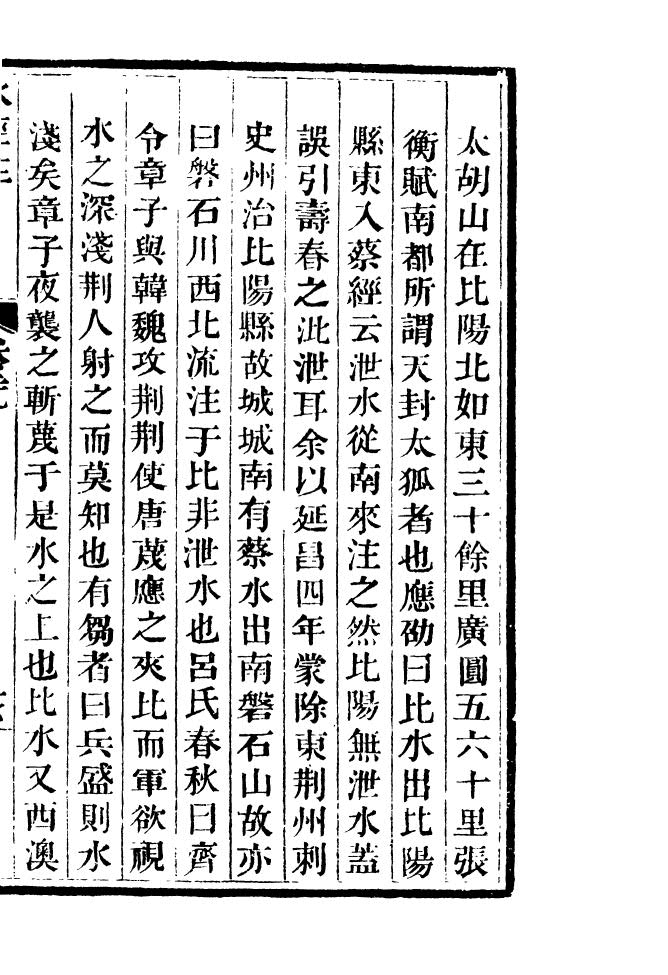 太胡山在比陽北如東三十餘里廣圓五六十里張
衡賦南都所謂天封太狐者也應劭曰比水出比陽
縣東入蔡經云泄水從南來注之然比陽無泄水蓋
誤引壽春之沘泄耳余以延昌四年蒙除東荆州刺
史州治比陽縣故城城南有蔡水出南磐石山故亦
曰磐石川西北流注于比非泄水也呂氏春秋曰齊
令章子與韓魏攻荆荆使唐蔑應之夾比而軍欲視
水之深淺荆人射之而莫知也有芻者曰兵盛則水
淺矣章子夜襲之斬蔑于是水之上也比水又西澳